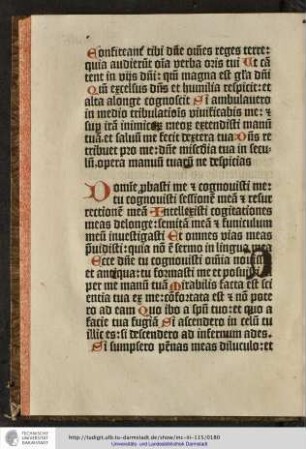 Confiteant̄ tibi dn̄e om̄es reges terre:
quia audierūt oīa verba oris tui Et cā
tent in vijs dn̄i: qm̄ magna est gl'a dn̄i
Qm̄ excelsus dn̄s et humilia respicit: et
alta a longe cognoscit Si ambulavero
in medio tribulatiōis vivificabis me: ⁊
sup irā inimicoꝝ meoꝝ extendisti manū
tuā et salvū me fecit dextera tua Dn̄s re
tribuet pro me: dn̄e mīa tua in secu
lū. opera manuū tuaꝝ ne despicias
Domine pbasti me ⁊ cognovisti me:
tu cognovisti sessionē meā ⁊ resur
rectionē meā Intellexisti cogitationes
meas de longe: semitā meā ⁊ funiculum
meū investigasti Et omnes vias meas
p̄vidisti: quia nō ē sermo in lingua mea
Ecce dn̄e tu cognovisti om̄ia novissima
et antiqua: tu formasti me et posuisti su
per me manū tuā Mirabilis facta est sci
entia tua ex me: cōfortata est ⁊ nō pote
ro ad eam Quo ibo a spū tuo: et quo a
facie tua fugiā Si ascendero in celū tu
illic es: si descendero ad infernum ades.
Si sumpsero pēnas meas diluculo: et
TECHNISCHE
UNIVERSITÄT
DARMSTADT
http://tudigit.ulb.tu-darmstadt.de/show/inc-iii-125/0180
Universitäts- und Landesbibliothek Darmstadt